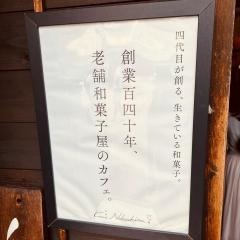 四代目が創る、生きている和菓子。
創業百四十年、
老舗和菓子屋のカフェ。